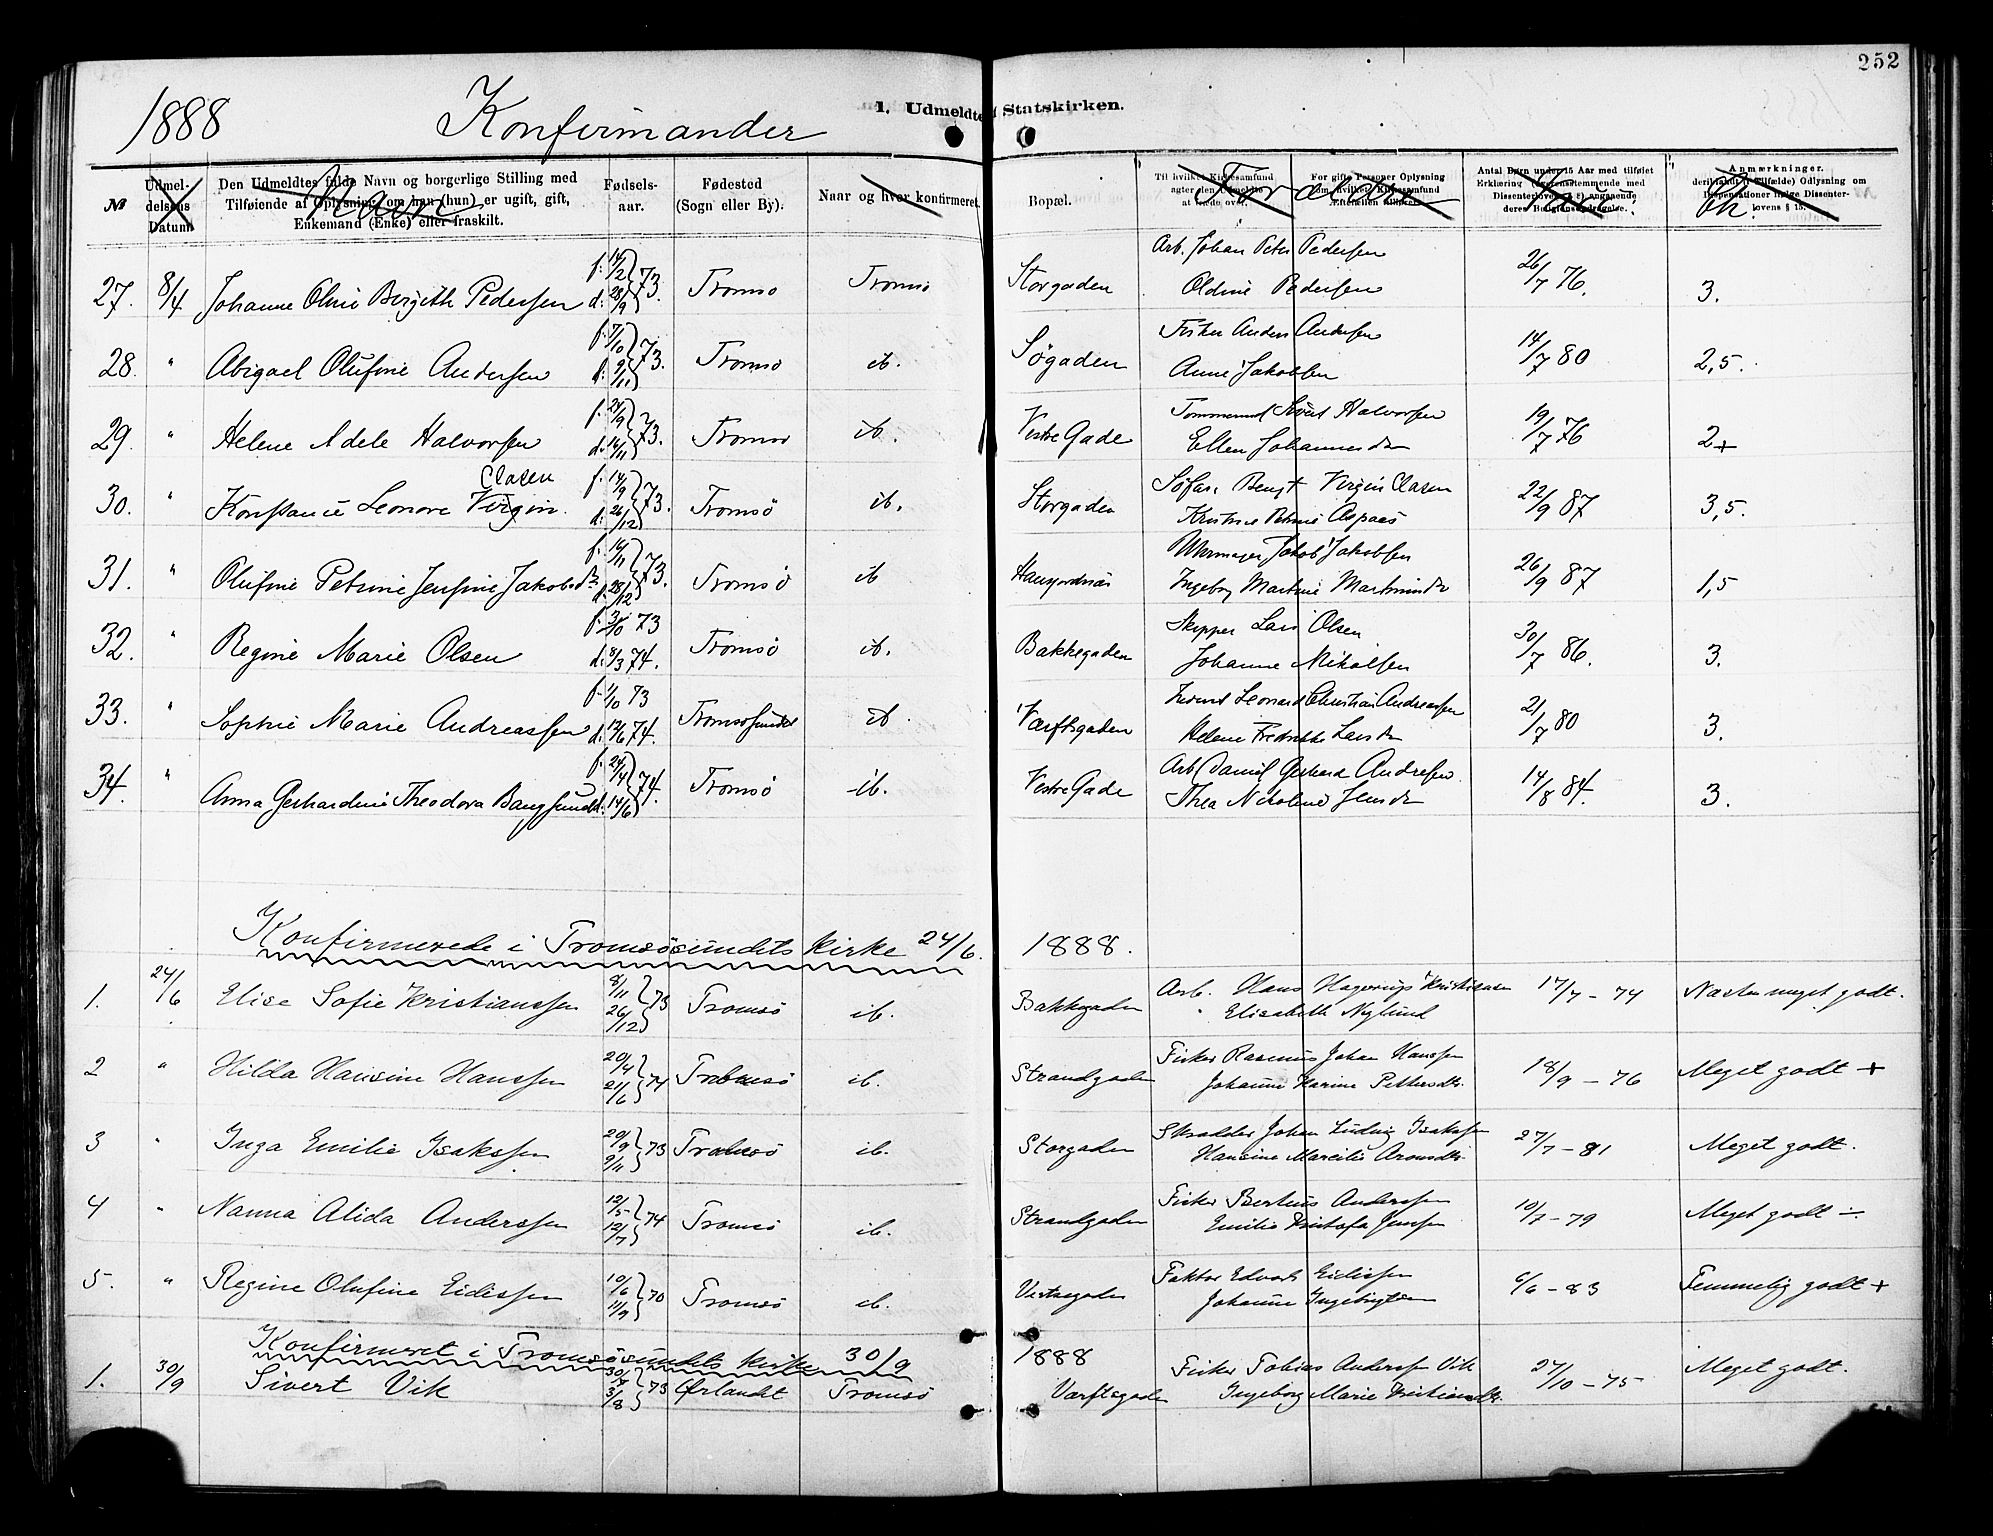 252
1888 Konfirmander
1. Udmeldte af Statskirken.
№
Udmel-
delsens
Datum
Den Udmeldtes fulde Navn og borgerlige Stilling med
Tilføiende af Oplysning, om han (hun) er ugift, gift,
Enkemand (Enke) eller fraskilt.
Navn
Fødsels-
aar.
Fødested
(Sogn eller By).
Naar og hvor konfirmeret.
Bopæl.
Til hvilket Kirkesamfund
agter den Udmeldte
at træde over.
For gifte Personer Oplysning
om hvilket Kirkesamfund
Ægtefællen tilhører.
Forældre
Antal Børn under 15 Aar med tilføiet
Erklæring (overensstemmende med
Dissenterlovens § 8) angaaende
deres Religionsopdragelse.
Vacc.
Anmærkninger.
deriblandt (i Tilfælde) Oplysning om
Dispensationer ifølge Dissenter-
lovens § 15.
27. 8/4 Johanne Oline Bergith Pedersen f. 14/2 d. 28/9 73. Tromsø Tromsø Storgaden Arb. Johan Peter Pedersen 26/7 76. 3.
Oldine Pedersen
28. " Abigael Olufine Andersen f. 7/10 d. 9/11 73. Tromsø ib. Søgaden Fisker Anders Andersen 14/7 80 2,5.
Anne Jakobsen
29. " Helene Adele Halvorsen f. 24/9 d. 14/11 73. Tromsø ib. Vestre Gade Tømmermd Sivert Halvorsen 19/7 76 2+
Ellen Johannesdr
30. " Konstance Leonore Virgin Clasen f. 14/9 d. 26/12 73. Tromsø ib. Storgaden Søfar. Bengt Virgin Clasen 22/9 87 3,5.
Kristine Petrine Aspaas
31. " Olufine Petrine Jensine Jakobsdr f. 14/11 d. 28/12 73. Tromsø ib Jakob Jakobsen 26/9 87 1,5
Ingeborg Martine Martinsdr
32. " Regine Marie Olsen 73 d. 8/3 74. Tromsø ib. Bakkegaden Skipper Lars Olsen 30/7 86. 3.
Johanne Nikolsen
33. " Sophie Marie Andreassen f. 1/10 73 d. 12/6 74. Tromsøsundet ib. Værftsgaden Leonard Christian Andreassen 21/7 80 3.
Helene Fredrikke Larsdr
34. " Anna Gerhardine Theodora Bangsund f. 24/4 d. 14/6 74. Tromsø ib. Vestre Gade Arb. Daniel Gerhard Andresen 14/8 84. 3.
Thea Nikoline Jensdr
Konfirmerede i Tromsøsundets kirke 24/6. 1888.
1. 24/6 Elise Sofie Kristianssen 8/11 26/12 73 Tromsø ib. Bakkegaden Arb. Hans Hagerup Kristiansen 17/7 – 74 Næsten meget godt.
Elisabeth Nylund
2 " Hilda Hansine Hanssen 20/4 21/6 74 Tromsø ib. Strandgaden Fisker Rasmus Johan Hanssen 18/9 – 76 Meget godt +
Johanne Karine Pettersdtr.
3 " Inga Emilie Isakssen 20/9 9/11 73 Tromsø ib. Storgaden Skrædder Johan Ludvig Isakssen 27/7 – 81 Meget godt.
Hansine Marcilie Aronsdtr.
4 " Nanna Alida Anderssen 12/5 12/7 74 Tromsø ib. Strandgaden Fisker Berteus Anderssen 10/7 – 79 Meget godt ÷
Emilie Kristofa Jenssen
5. " Regine Olufine Eidissen 10/6 11/9 70 Tromsø ib. Vestregaden Faktor Edvart Eidissen 6/6 – 83 Temmelig godt +
Johanne Ingebrigtsen
Konfirmeret i Tromsøsundets kirke 30/9 1888
1. 30/9 Sivert Vik 30/7 3/8 73 Ørlandet Tromsø Værftsgaden Fisker Tobias Anderssen Vik 27/10 – 75 Meget godt.
Ingeborg Marie Kristiansdtr.